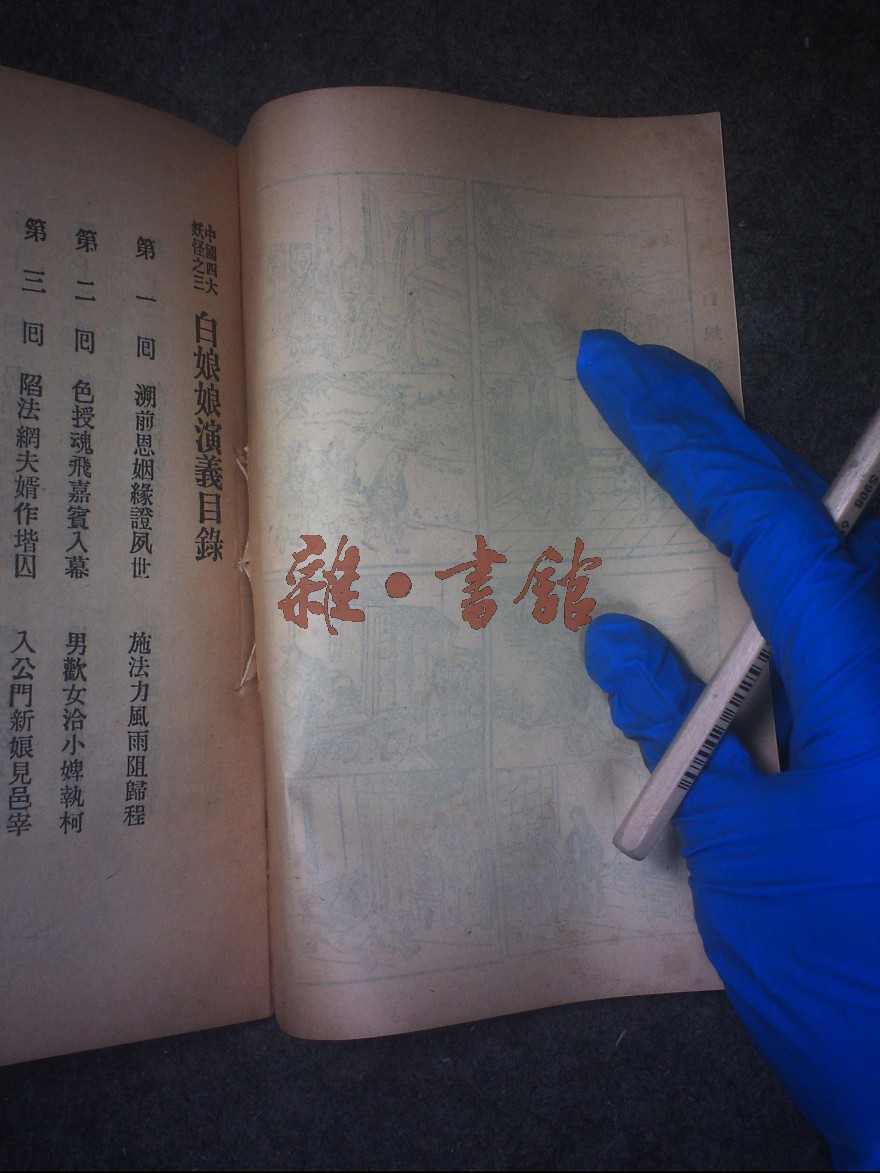 中國四大
妖怪之三
白娘娘演義目錄
第一囘 溯前恩姻緣證夙世 施法力風雨阻歸程
第二囘 色授魂飛嘉賓入幕 男歡女洽小婢執柯
第三囘 陷法網夫婿作堦囚 入公門新娘見邑宰
雜·書館